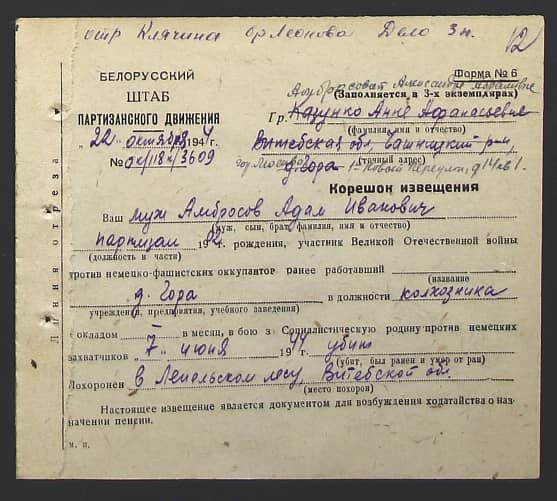 отр Клягина бр Леонова Дело 3 п. 12
БЕЛОРУССКИЙ
ШТАБ
ПАРТИЗАНСКОГО ДВИЖЕНИЯ
„22„ октября 1944 г.
№ ок/118к/3609
Форма № 6
Амбросовой Александре Адамовне
(Заполняется в 3-х экземплярах)
Гр. Анне Афанасьевне
(фамилия, имя и отчество)
Витебская обл,
(точный адрес)
гор. Москва д. Гора 1-й Новый переулок, д 14 кв 1.
Корешок извещения
Ваш муж Амбросов Адам Иванович
(муж, сын, брат, фамилия, имя и отчество)
партизан 1902 г. рождения, участник Великой Отечественной войны
(должность в части)
против немецко-фашистских оккупантов ранее работавший
(название
д. Гора в должности колхозника
учреждения, предприятия, учебного заведения)
с окладом — в месяц, в бою за Социалистическую родину против немецких
захватчиков „ 7 „ июня 1944 убит
(убит, был ранен и умер от ран)
Похоронен в Лепельском лесу, Витебской обл.
(место похорон)
Настоящее извещение является документом для возбуждения ходатайства о наз-
начении пенсии.
м. п.
Линия отреза